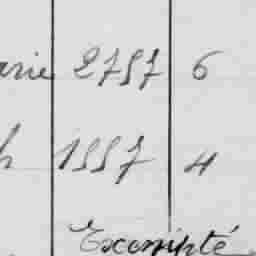 arie 2757 6
h 1557 4
Exempté